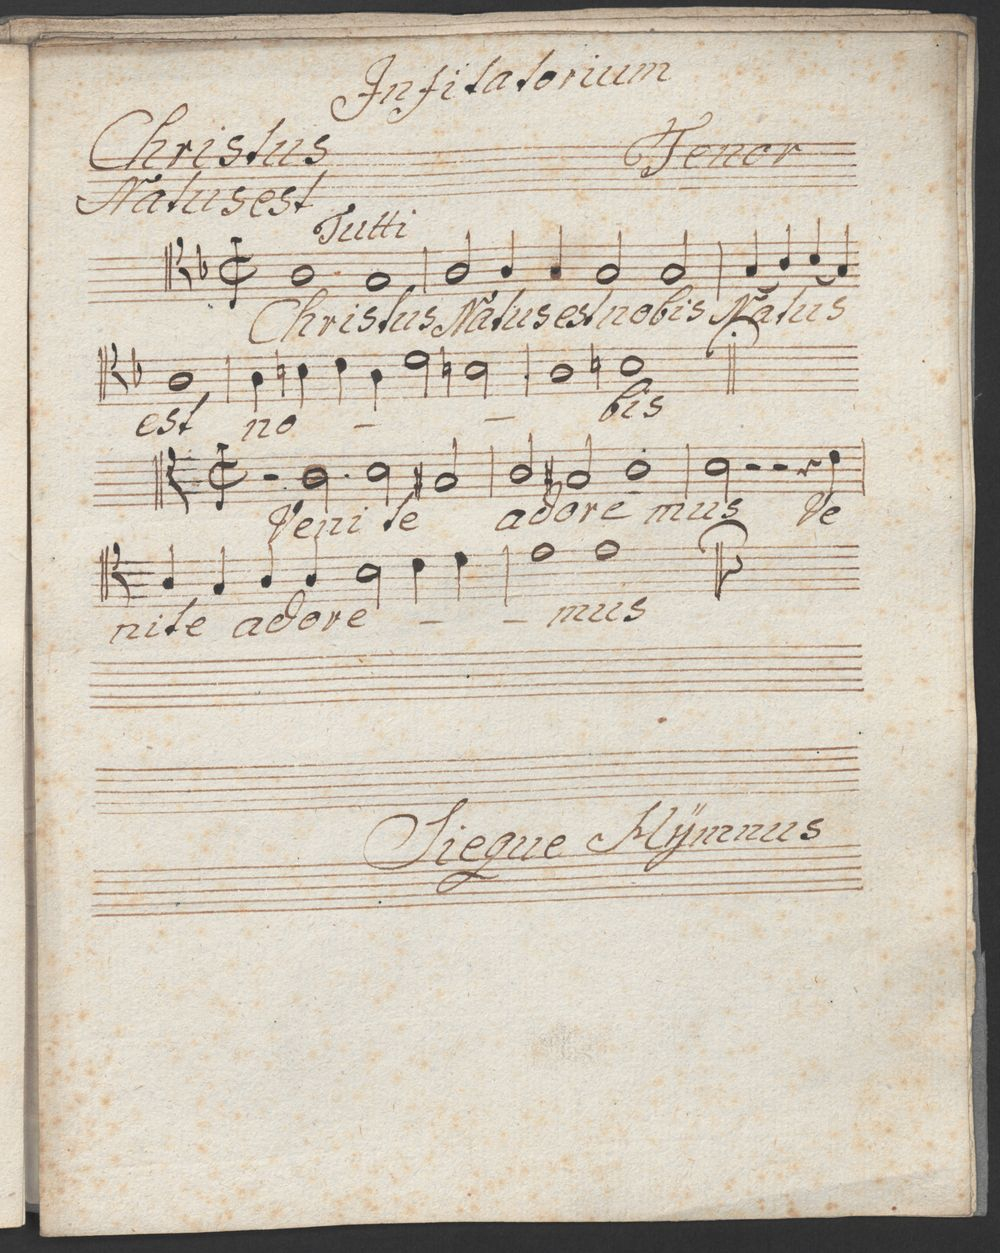 Infitatorium
Christus Tenor
Natus est
Tutti
Christus Natus est nobis Natus
est no - - bis
Veni te adore mus Ve
nite adore - - mus
Siegue Hÿmnus